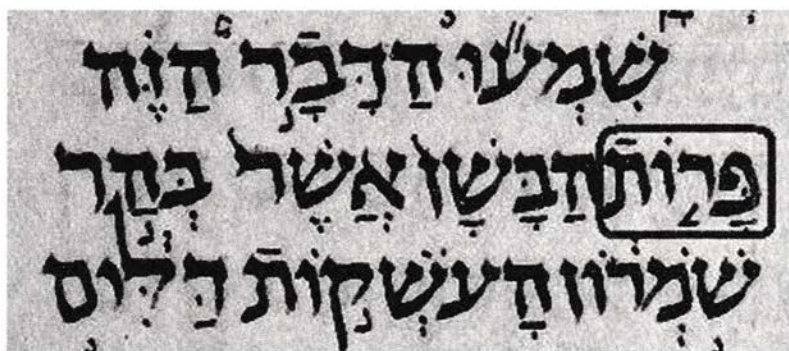 שִׁמְעוּ הַדָּבָר הַזֶּה
פָּרוֹת הַבָּשָׁן אֲשֶׁר בְּהַר
שֹׁמְרוֹן הָעֹשְׁקוֹת דַּלִּים